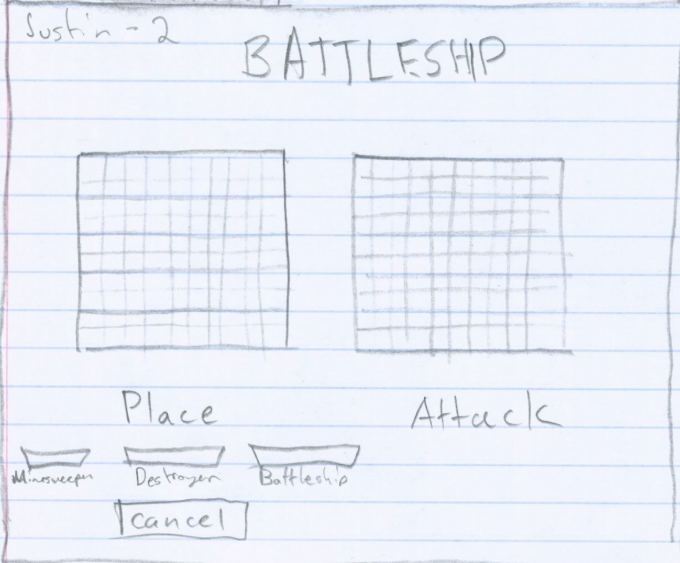 Justin - 2
BATTLESHIP
Place
Attack
Minesweeper
Destroyer
Battleship
cancel